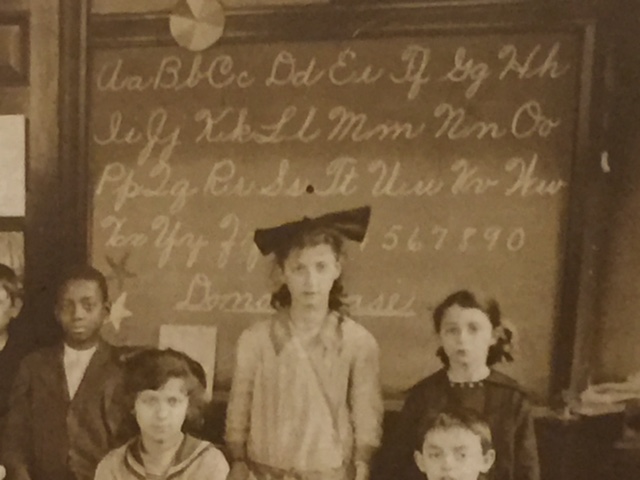 Aa Bb Cc Dd Ee Ff Gg Hh
Ii Jj Kk Ll Mm Nn Oo
Pp Qq Rr Ss Tt Uu Vv Ww
Xx Yy Zz 1 5 6 7 8 9 0